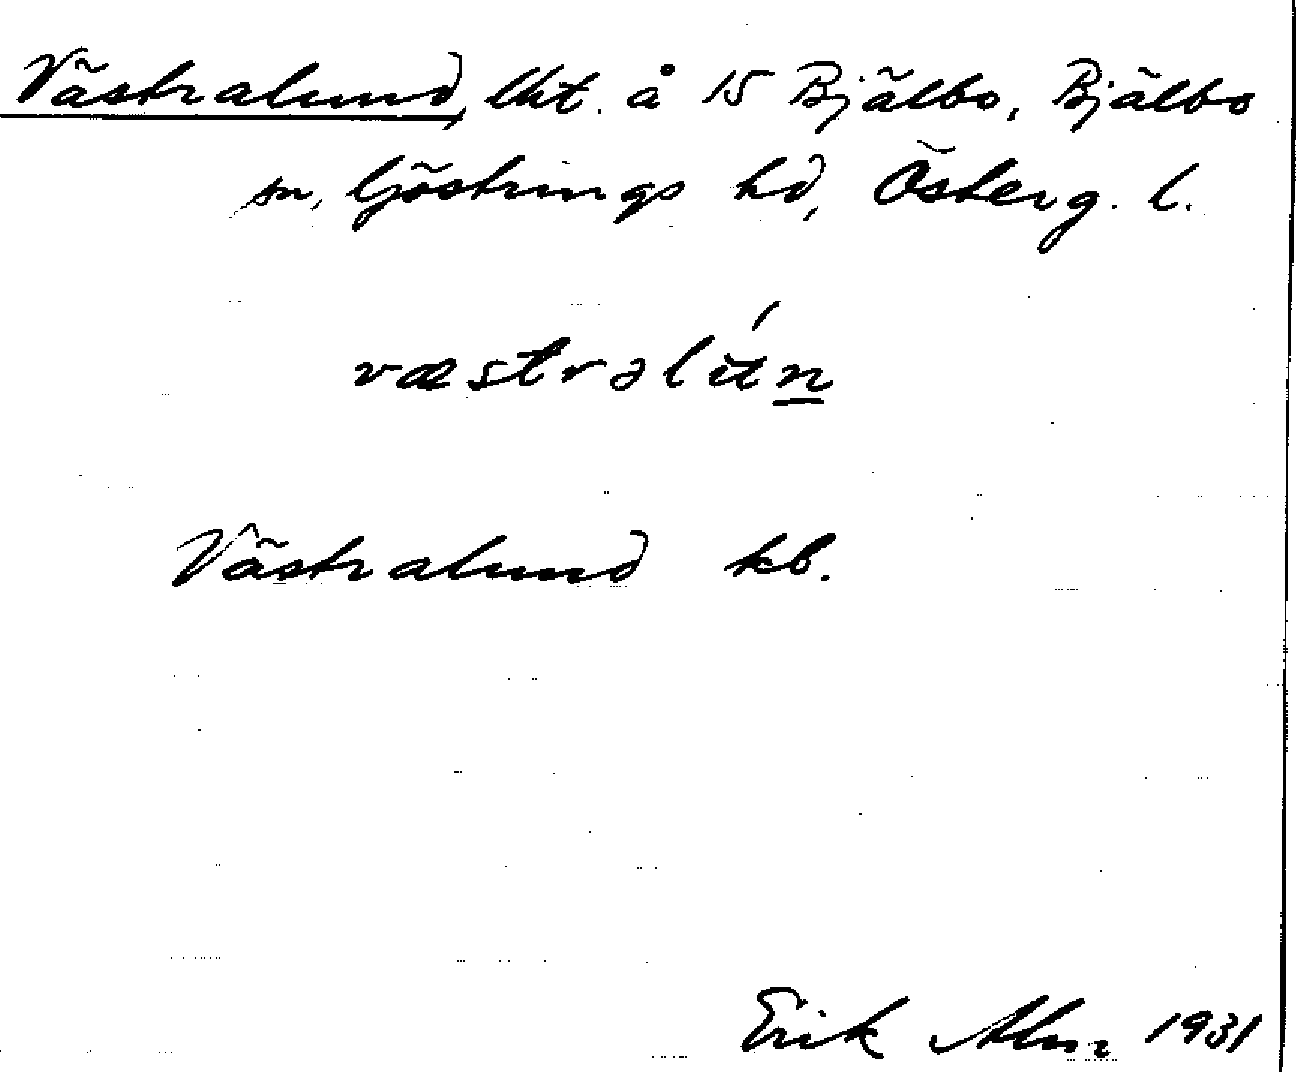 Västralund, lht. å 15 Bjälbo, Bjälbo
sn, Göstrings hd, Österg. l.
væstrəlún
Västralund kb.
Erik Alm 1931